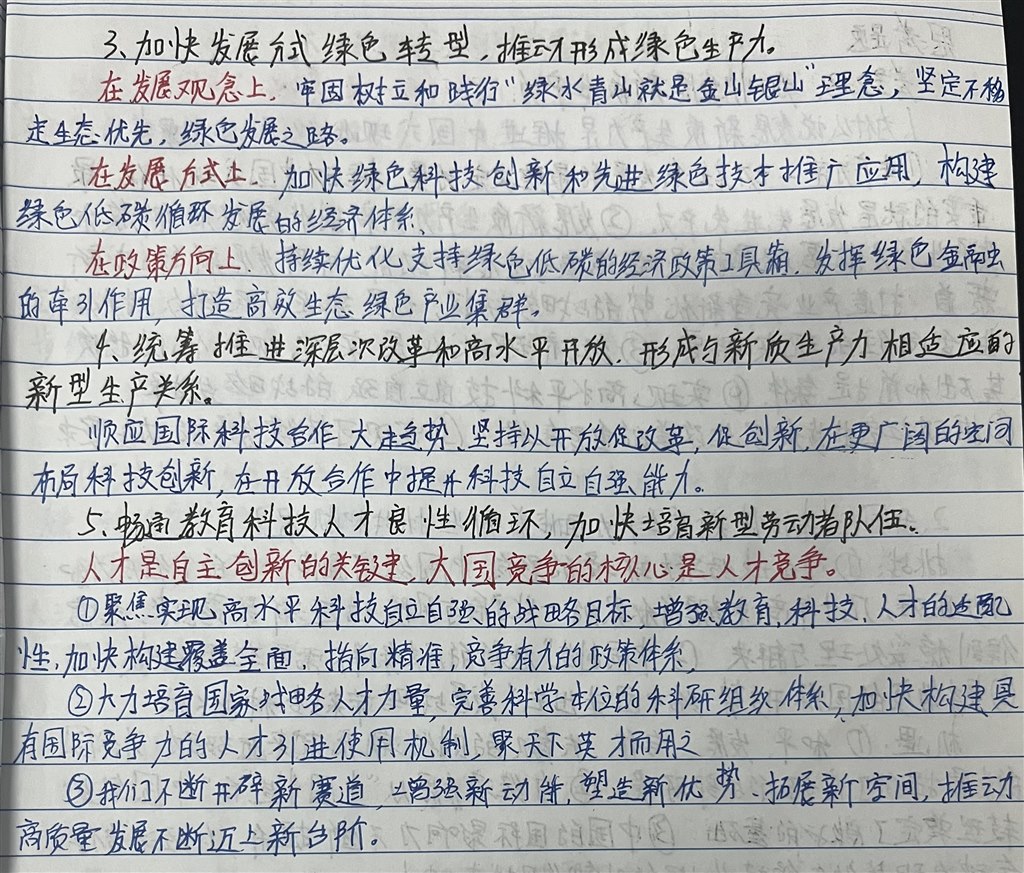 3、加快发展方式绿色转型，推动形成绿色生产力。
在发展观念上，牢固树立和践行“绿水青山就是金山银山”理念，坚定不移
走生态优先，绿色发展之路。
在发展方式上，加快绿色科技创新和先进绿色技术推广应用，构建
绿色低碳循环发展的经济体系、
在政策方向上，持续优化支持绿色低碳的经济政策工具箱，发挥绿色金融
的牵引作用，打造高效生态绿色产业集群。
4、统筹推进深层次改革和高水平开放，形成与新质生产力相适应的
新型生产关系。
顺应国际科技合作大趋势、坚持以开放促改革，促创新，在更广阔的空间
布局科技创新，在开放合作中提升科技自立自强能力。
5、畅通教育科技人才良性循环，加快培育新型劳动者队伍。
人才是自主创新的关键，大国竞争的核心是人才竞争。
①聚焦实现高水平科技自立自强的战略目标，增强教育，科技，人才的适配
性，加快构建覆盖全面，指向精准，竞争有力的政策体系，
②大力培育国家战略人才力量，完善科学本位的科研组织体系，加快构建具
有国际竞争力的人才引进使用机制，聚天下英才而用之
③我们不断开辟新赛道，增强新动能，塑造新优势、拓展新空间，推动
高质量发展不断迈上新台阶。